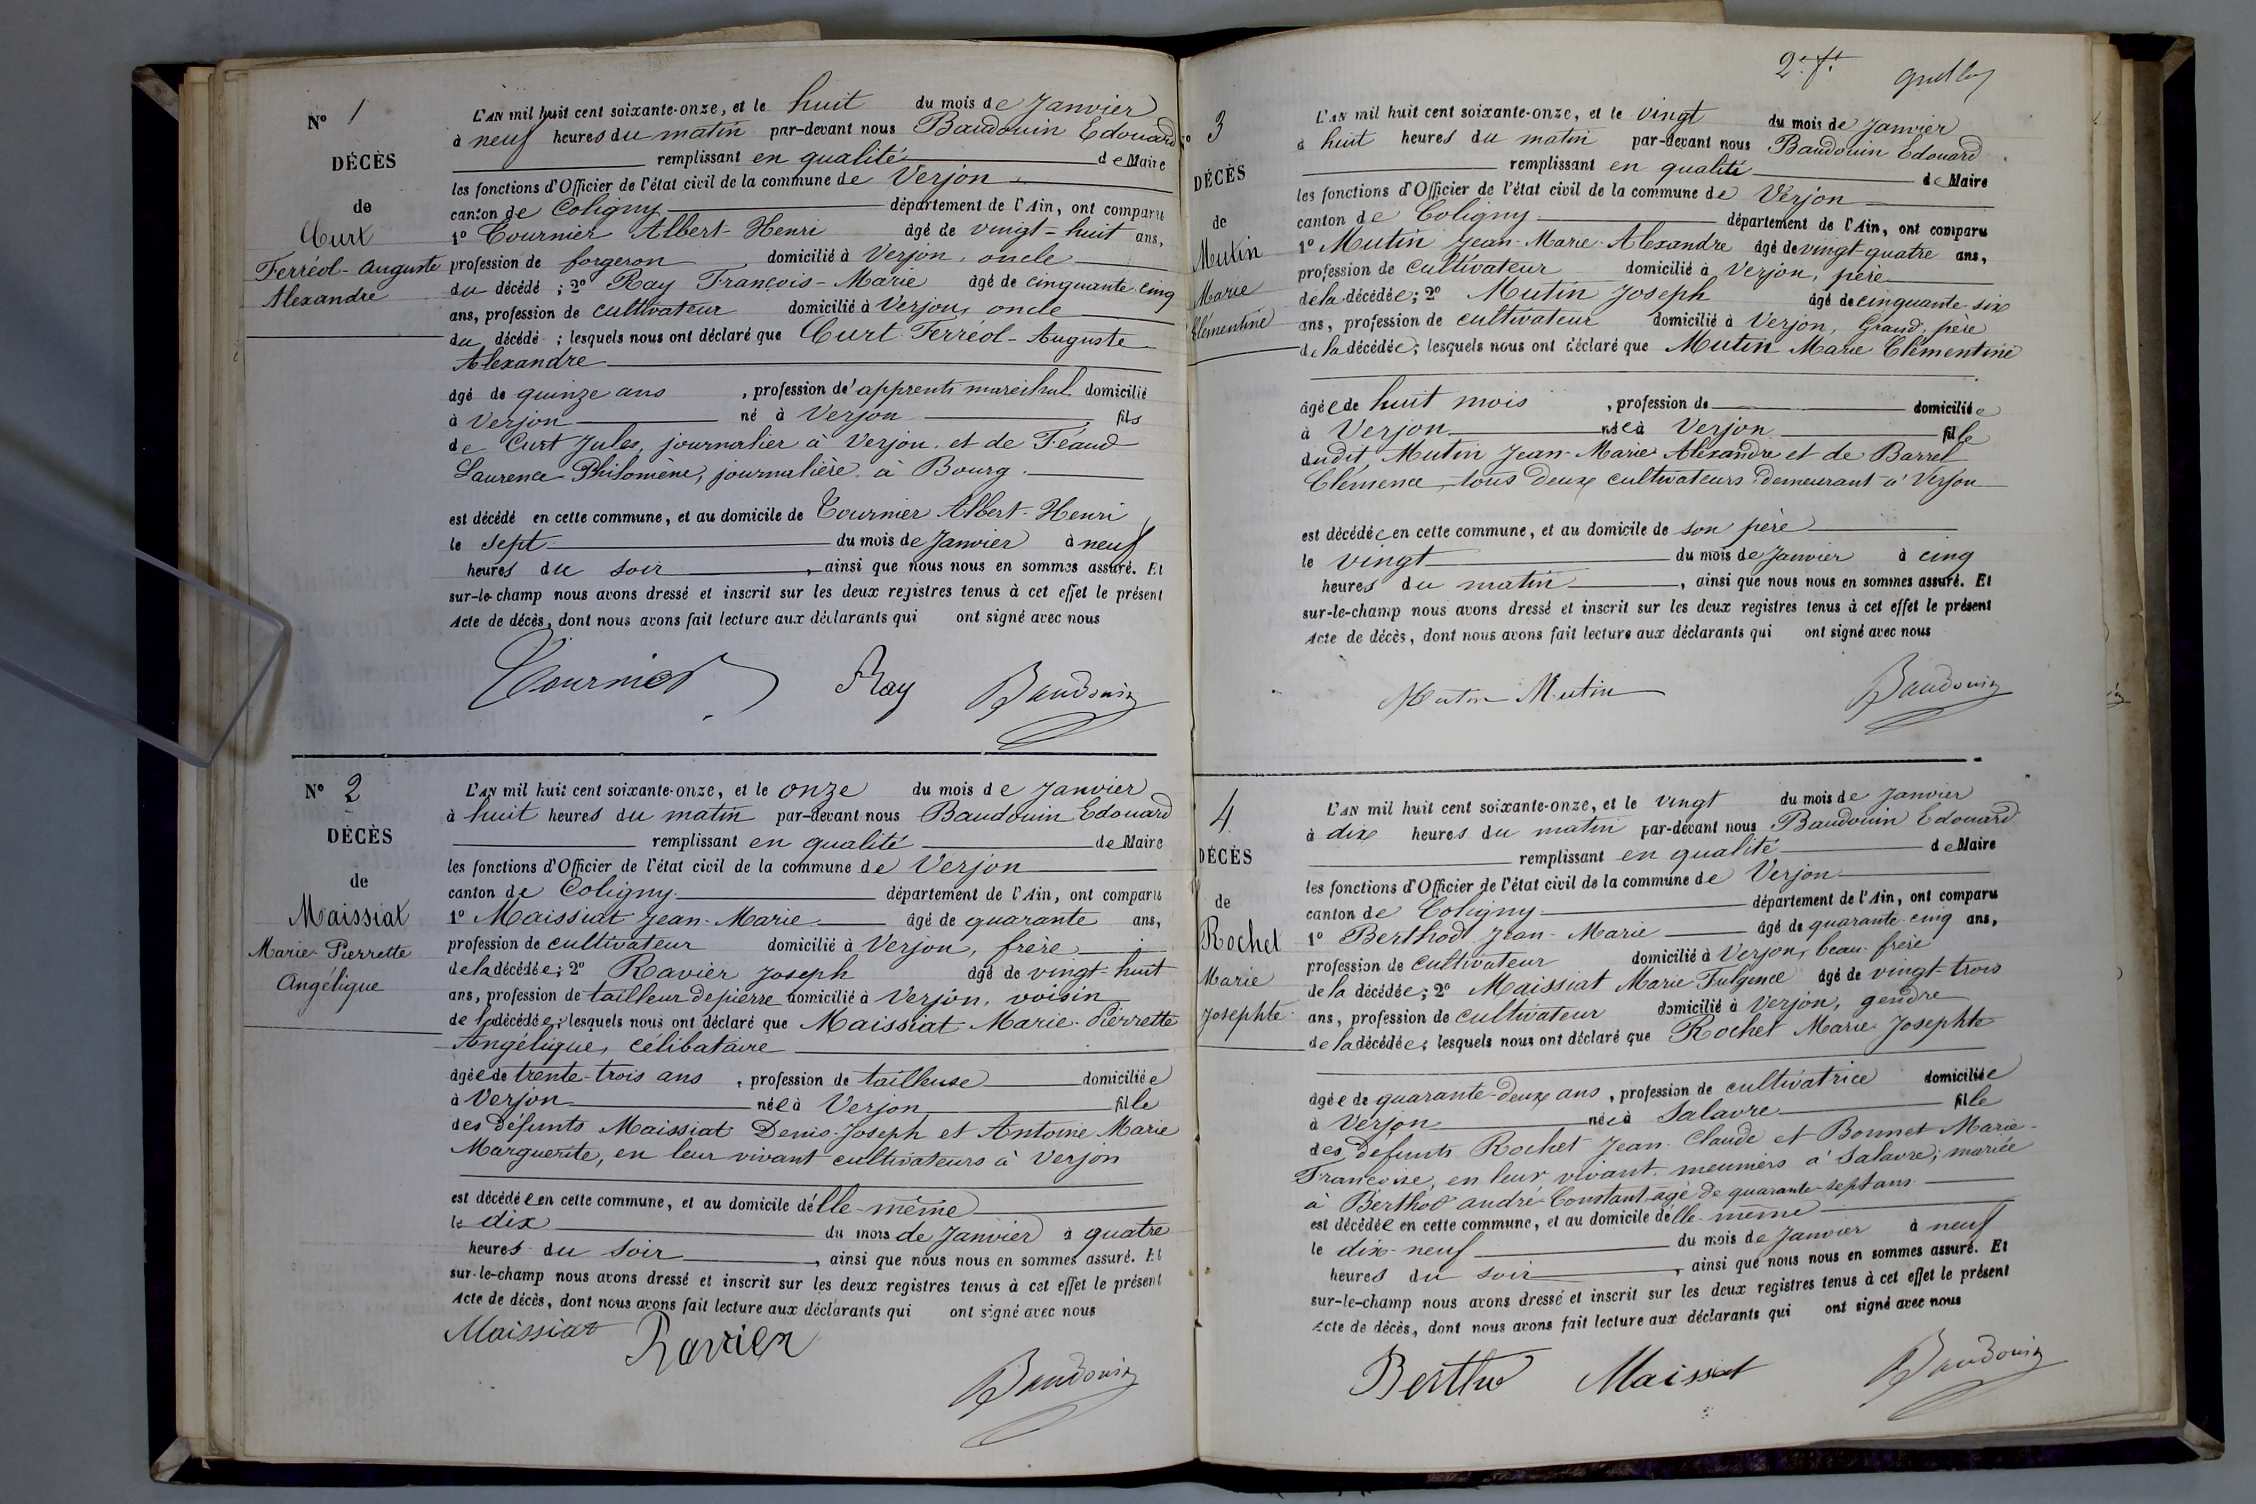 N° 1
DÉCÈS
de
Curt
Ferréol-Auguste
Alexandre
L'AN mil huit cent soixante-onze, et le huit du mois de Janvier
à neuf heures du matin par-devant nous Baudouin Edouard
remplissant en qualité de Maire
les fonctions d'Officier de l'état civil de la commune de Verjon
canton de Coligny département de l'Ain, ont comparu
1° Tournier Albert-Henri âgé de vingt-huit ans,
profession de forgeron domicilié à Verjon, oncle
du décédé ; 2° Ray François-Marie âgé de cinquante cinq
ans, profession de cultivateur domicilié à Verjon, oncle
du décédé ; lesquels nous ont déclaré que Curt Ferréol-Auguste
Alexandre
âgé de quinze ans , profession d'apprenti maréchal domicilié
à Verjon né à Verjon fils
de Curt Jules, journalier à Verjon et de Féaud
Laurence Philomène, journalière à Bourg.
est décédé en cette commune, et au domicile de Tournier Albert-Henri
le sept du mois de Janvier à neuf
heures du soir , ainsi que nous nous en sommes assuré. Et
sur-le-champ nous avons dressé et inscrit sur les deux registres tenus à cet effet le présent
Acte de décès, dont nous avons fait lecture aux déclarants qui ont signé avec nous
Tournier Ray Baudouin
N° 2
DÉCÈS
de
Maissiat
Marie-Pierrette
Angélique
L'AN mil huit cent soixante-onze, et le onze du mois de Janvier
à huit heures du matin par-devant nous Baudouin Edouard
remplissant en qualité de Maire
les fonctions d'Officier de l'état civil de la commune de Verjon
canton de Coligny département de l'Ain, ont comparu
1° Maissiat Jean-Marie âgé de quarante ans,
profession de cultivateur domicilié à Verjon, frère
de la décédée ; 2° Ravier Joseph âgé de vingt-huit
ans, profession de tailleur de pierre domicilié à Verjon, voisin
de la décédée ; lesquels nous ont déclaré que Maissiat Marie-Pierrette
Angélique, célibataire
âgée de trente-trois ans , profession de tailleuse domiciliée
à Verjon née à Verjon fille
des défunts Maissiat Denis-Joseph et Antoine Marie
Marguerite, en leur vivant cultivateurs à Verjon
est décédée en cette commune, et au domicile d'elle-même
le dix du mois de Janvier à quatre
heures du soir , ainsi que nous nous en sommes assuré. Et
sur-le-champ nous avons dressé et inscrit sur les deux registres tenus à cet effet le présent
Acte de décès, dont nous avons fait lecture aux déclarants qui ont signé avec nous
Maissiat Ravier
Baudouin
2e ft.
3
DÉCÈS
de
Mutin
Marie
Clémentine
L'AN mil huit cent soixante-onze, et le vingt du mois de Janvier
à huit heures du matin par-devant nous Baudouin Edouard
remplissant en qualité de Maire
les fonctions d'Officier de l'état civil de la commune de Verjon
canton de Coligny département de l'Ain, ont comparu
1° Mutin Jean-Marie-Alexandre âgé de vingt-quatre ans,
profession de cultivateur domicilié à Verjon, père
de la décédée ; 2° Mutin Joseph âgé de cinquante six
ans, profession de cultivateur domicilié à Verjon, Grand-père
de la décédée ; lesquels nous ont déclaré que Mutin Marie Clémentine
âgée de huit mois , profession de domiciliée
à Verjon née à Verjon fille
dudit Mutin Jean-Marie Alexandre et de Barrel
Clémence, tous deux cultivateurs demeurant à Verjon
est décédée en cette commune, et au domicile de son père
le vingt du mois de Janvier à cinq
heures du matin , ainsi que nous nous en sommes assuré. Et
sur-le-champ nous avons dressé et inscrit sur les deux registres tenus à cet effet le présent
Acte de décès, dont nous avons fait lecture aux déclarants qui ont signé avec nous
Mutin Mutin Baudouin
4
DÉCÈS
de
Rochet
Marie
Josephte
L'AN mil huit cent soixante-onze, et le vingt du mois de Janvier
à dix heures du matin par-devant nous Baudouin Edouard
remplissant en qualité de Maire
les fonctions d'Officier de l'état civil de la commune de Verjon
canton de Coligny département de l'Ain, ont comparu
1° Berthod Jean-Marie âgé de quarante-cinq ans,
profession de cultivateur domicilié à Verjon, beau-frère
de la décédée ; 2° Maissiat Marie Fulgence âgé de vingt-trois
ans, profession de cultivateur domicilié à Verjon, gendre
de la décédée ; lesquels nous ont déclaré que Rochet Marie Josephte
âgée de quarante-deux ans , profession de cultivatrice domiciliée
à Verjon née à Salavre fille
des défunts Rochet Jean-Claude et Bonnet Marie-
Françoise, en leur vivant meuniers à Salavre ; mariée
à Berthod andré-Constant âgé de quarante-sept ans
est décédée en cette commune, et au domicile d'elle-même
le dix-neuf du mois de Janvier à neuf
heures du soir , ainsi que nous nous en sommes assuré. Et
sur-le-champ nous avons dressé et inscrit sur les deux registres tenus à cet effet le présent
Acte de décès, dont nous avons fait lecture aux déclarants qui ont signé avec nous
Berthod Maissiat Baudouin